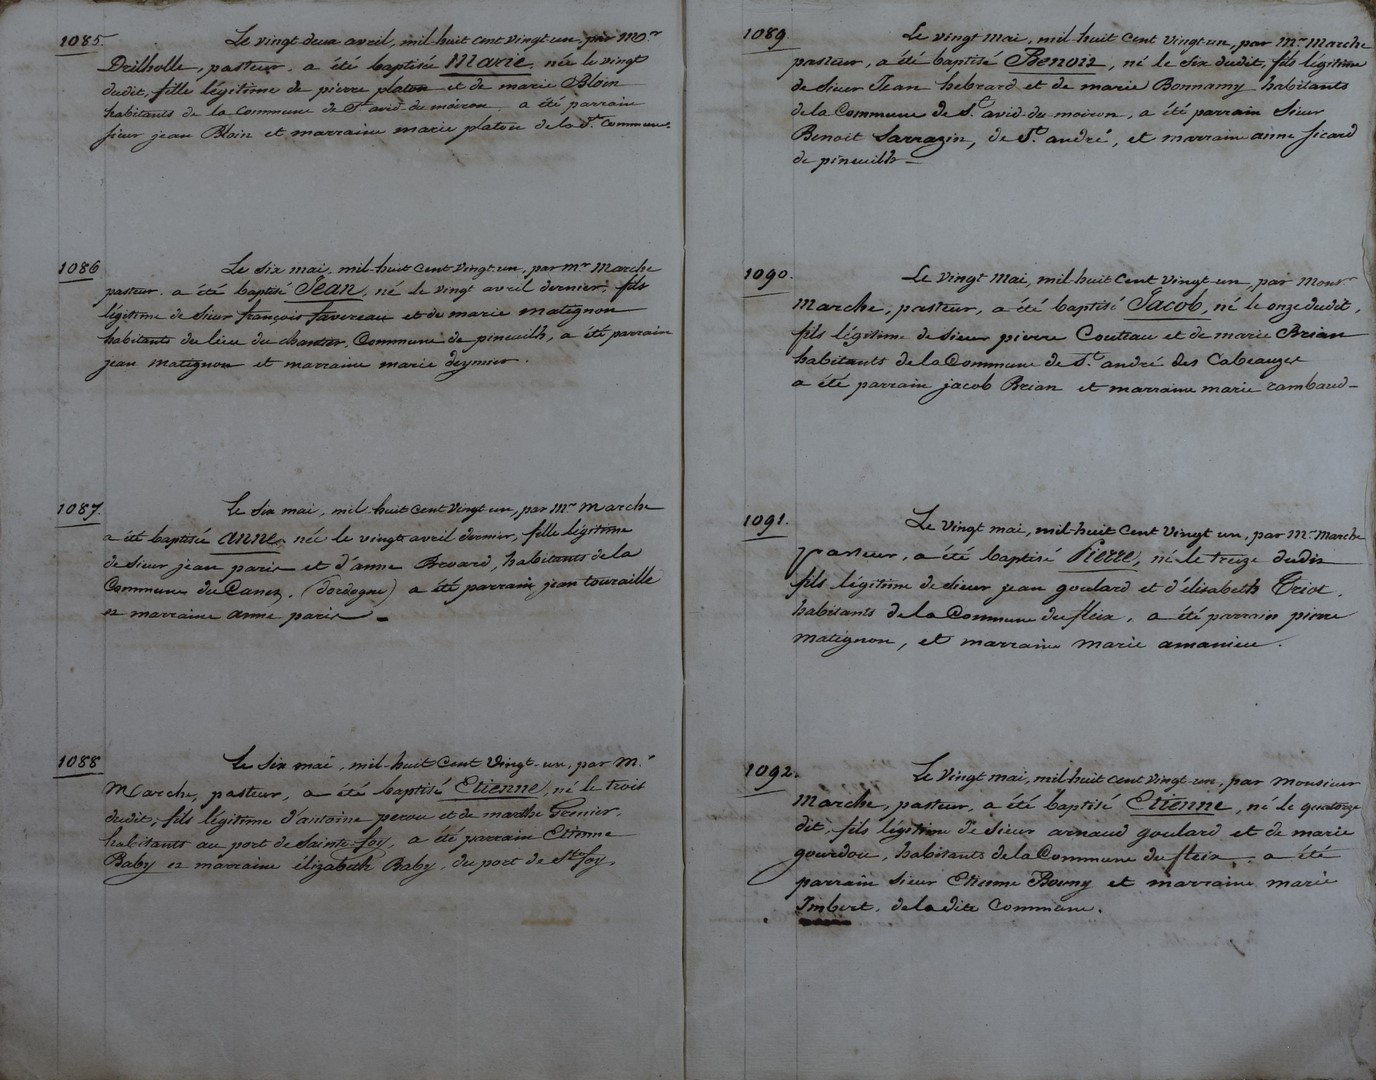 1085. Le vingt deux avril, mil-huit cent vingt-un, par Mr
Drilholle, pasteur, a été baptisé Marie, née le vingt
dudit, fille légitime de pierre platon et de marie Bloin
habitants de la Commune de St avid-du-moiron, a été parrain
sieur jean Bloin et marraine marie platon de la dte Commune.
1086 Le six mai, mil-huit cent vingt-un, par mr Marche
pasteur, a été baptisé Jean, né le vingt avril dernier, fils
légitime de sieur françois favereau et de marie matignon
habitants du lieu du Commune de pineuilh, a été parrain
jean matignon et marraine marie deymier.
1087. Le six mai, mil-huit cent vingt un, par Mr Marche
a été baptisée anne, née le vingt avril dernier, fille légitime
de sieur jean paris et d'anne habitants de la
Commune du Canet, (Dordogne) a été parrain jean touraille
et marraine anne paris
1088 Le six mai, mil-huit cent vingt-un, par Mr
Marche, pasteur, a été baptisé Etienne, né le trois
dudit, fils légitime d'antoine perou et de marthe Grenier,
habitants au port de Sainte-foy, a été parrain Etienne
Baby et marraine élizabeth Baby, du port de Ste foy.
1089 Le vingt mai, mil-huit cent vingt-un, par mr Marche
pasteur, a été baptisé Benoit, né le six dudit, fils légitime
de sieur Jean hebrard et de marie Bonnamy habitants
de la Commune de St avid-du-moiron, a été parrain sieur
Benoit Sarrazin, de St andré, et marraine anne sicard
de pineuilh
1090. Le vingt mai, mil-huit cent vingt-un, par Monsr
Marche, pasteur, a été baptisé Jacob, né le onze dudit,
fils légitime de sieur pierre Couteau et de marie Brian
habitants de la Commune de St andré des Cabeauzes
a été parrain jacob Brian et marraine marie rambaud
1091. Le vingt mai, mil-huit cent vingt un, par Mr Marche
pasteur, a été baptisé Pierre, né le treize dudit
fils légitime de sieur jean goulard et d'élisabeth Triot,
habitants de la Commune du fleix, a été parrain pierre
matignon, et marraine marie amanieu.
1092. Le vingt mai, mil-huit cent vingt-un, par Monsieur
Marche, pasteur, a été baptisé Etienne, né le quatorze
dit, fils légitime de sieur arnaud goulard et de marie
gourdou, habitants de la Commune du fleix, a été
parrain sieur Etienne Bouny et marraine marie
Imbert, de la dite Commune.